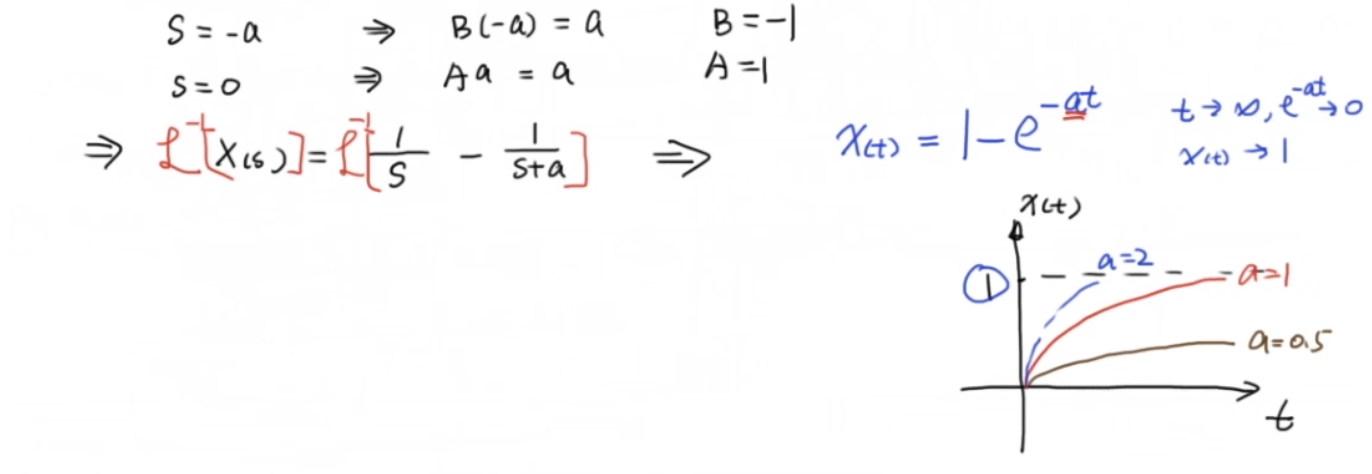 S = -a ⇒ B(-a) = a B = -1
S = 0 ⇒ Aa = a A = 1
⇒ ℒ⁻¹[X(s)] = ℒ⁻¹[1/S - 1/(S+a)] ⇒ x(t) = 1 - e^(-at)
t → ∞, e^(-at) → 0
x(t) → 1
x(t)
a=2
1
a=1
a=0.5
t